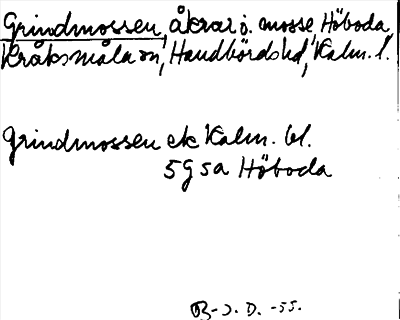 Grindmossen, åkrar o. mosse, Höboda,
Kråksmåla sn, Handbörds hd, Kalm. l.
Grindmossen ek Kalm. bl.
5g5a Höboda
B-J. D. -55.